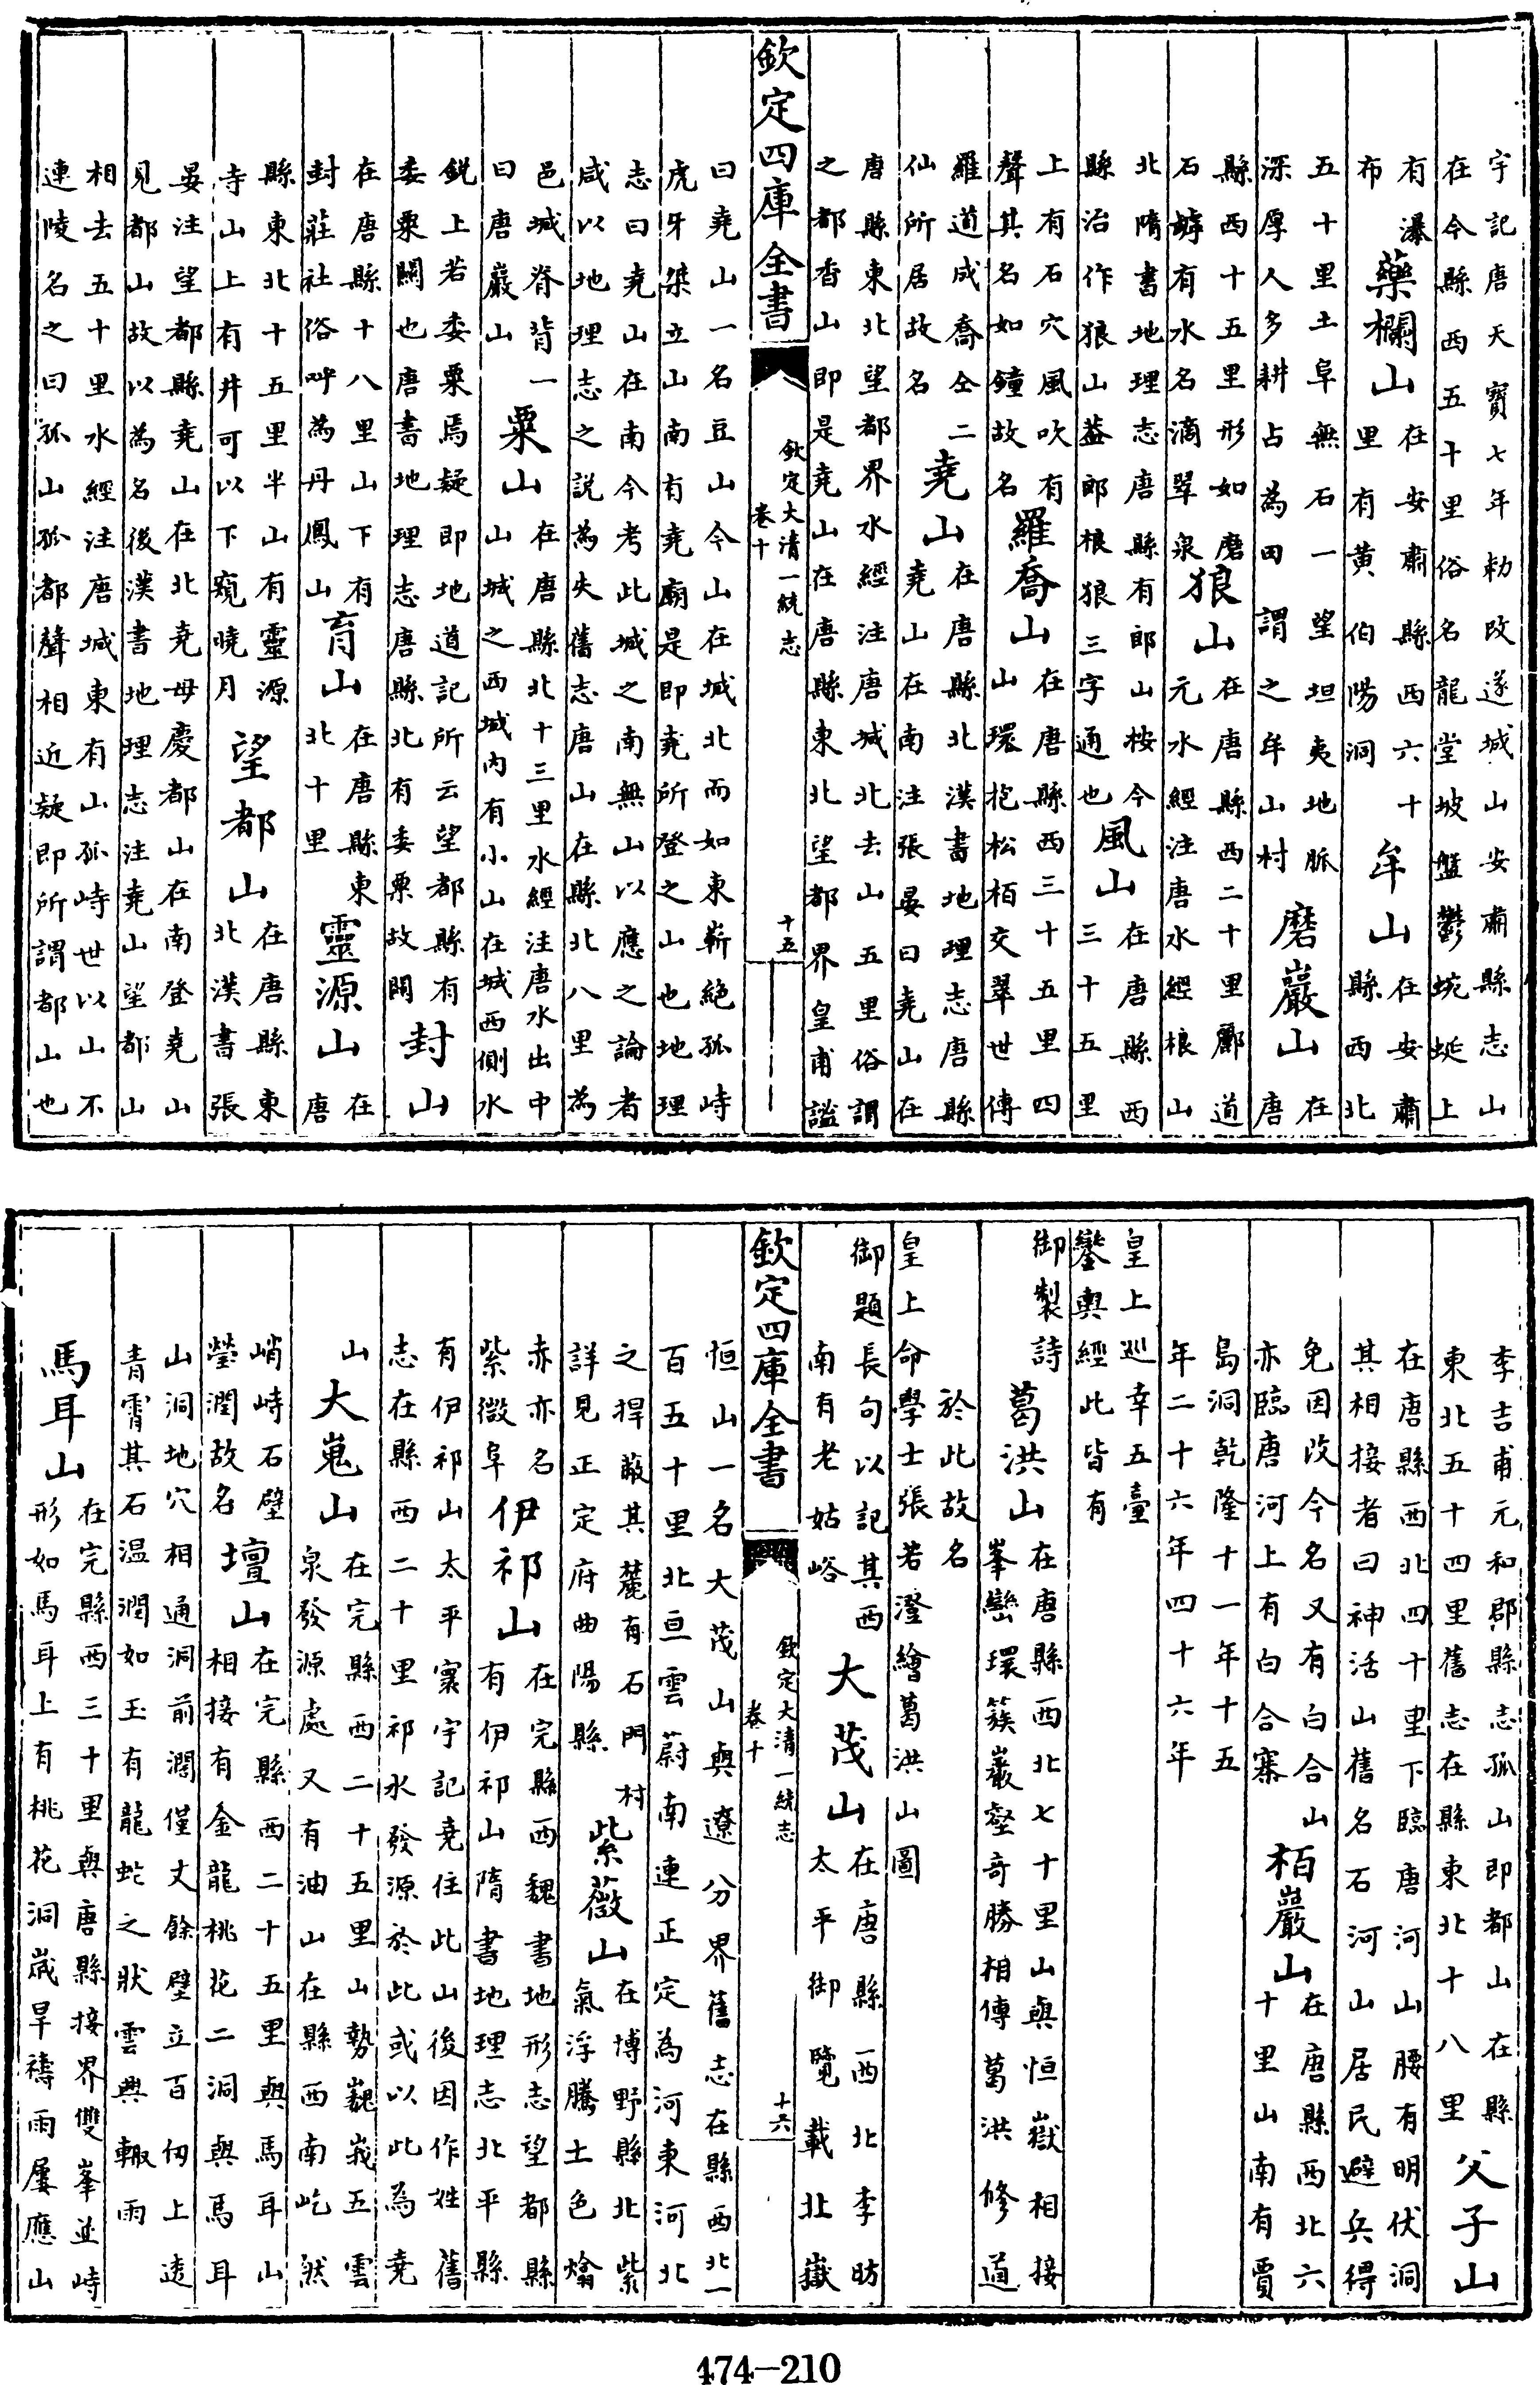 宇記唐天寶七年勅改遂城山安肅縣志山
在今縣西五十里俗名龍堂坡盤鬱蜿蜒上
有瀑
布
藥欄山
在安肅縣西六十
里有黄伯陽洞
牟山
在安肅
縣西北
五十里土阜無石一望坦夷地脈
深厚人多耕占為田謂之牟山村
磨巖山
在
唐
縣西十五里形如磨
石罅有水名滴翠泉
狼山
在唐縣西二十里酈道
元水經注唐水經狼山
北隋書地理志唐縣有郎山桉今
縣治作狼山葢郎根狼三字通也
風山
在唐縣西
三十五里
上有石穴風吹有
聲其名如鐘故名
羅喬山
在唐縣西三十五里四
山環抱松栢交翠世傳
羅道成喬仝二
仙所居故名
堯山
在唐縣北漢書地理志唐縣
堯山在南注張晏曰堯山在
唐縣東北望都界水經注唐城北去山五里俗謂
之都杳山即是堯山在唐縣東北望都界皇甫謐
欽定四庫全書
欽定大清一統志
卷十
十五
曰堯山一名豆山今山在城北而如東嶄絶孤峙
虎牙桀立山南有堯廟是即堯所登之山也地理
志曰堯山在南今考此城之南無山以應之論者
咸以地理志之説為失舊志唐山在縣北八里為
邑城脊背一
曰唐巖山
粟山
在唐縣北十三里水經注唐水出中
山城之西城内有小山在城西側水
鋭上若委粟焉疑即地道記所云望都縣有
委粟關也唐書地理志唐縣北有委粟故關
封山
在唐縣十八里山下有
封莊社俗呼為丹鳳山
育山
在唐縣東
北十里
靈源山
在
唐
縣東北十五里半山有靈源
寺山上有井可以下窺曉月
望都山
在唐縣東
北漢書張
晏注望都縣堯山在北堯母慶都山在南登堯山
見都山故以為名後漢書地理志注堯山望都山
相去五十里水經注唐城東有山孤峙世以山不
連陵名之曰孤山孤都聲相近疑即所謂都山也
李吉甫元和郡縣志孤山即都山在縣
東北五十四里舊志在縣東北十八里
父子山
在唐縣西北四十里下臨唐河山腰有明伏洞
其相接者曰神活山舊名石河山居民避兵得
免因改今名又有白合山
亦臨唐河上有白合寨
栢巖山
在唐縣西北六
十里山南有賈
島洞乾隆十一年十五
年二十六年四十六年
皇上巡幸五臺
鑾輿經此皆有
御製詩
葛洪山
在唐縣西北七十里山與恒嶽相接
峯巒環簇巖壑奇勝相傳葛洪修道
於此故名
皇上命學士張若澄繪葛洪山圖
御題長句以記其西
南有老姑峪
大茂山
在唐縣西北李昉
太平御覽載北嶽
欽定四庫全書
欽定大清一統志
卷十
十六
恒山一名大茂山與遼分界舊志在縣西北一
百五十里北亘雲蔚南連正定為河東河北
之捍蔽其麓有石門村
詳見正定府曲陽縣
紫薇山
在博野縣北紫
氣浮騰土色熻
赤亦名
紫微阜
伊祁山
在完縣西魏書地形志望都縣
有伊祁山隋書地理志北平縣
有伊祁山太平寰宇記堯住此山後因作姓舊
志在縣西二十里祁水發源於此或以此為堯
山
大嵬山
在完縣西二十五里山勢巍峩五雲
泉發源處又有油山在縣西南屹然
峭峙石壁
瑩潤故名
壇山
在完縣西二十五里與馬耳山
相接有金龍桃花二洞與馬耳
山洞地穴相通洞前濶僅丈餘壁立百仭上透
青霄其石温潤如玉有龍虵之狀雲興輙雨
馬耳山
在完縣西三十里與唐縣接界雙峯並峙
形如馬耳上有桃花洞歳旱禱雨屢應山
474—210